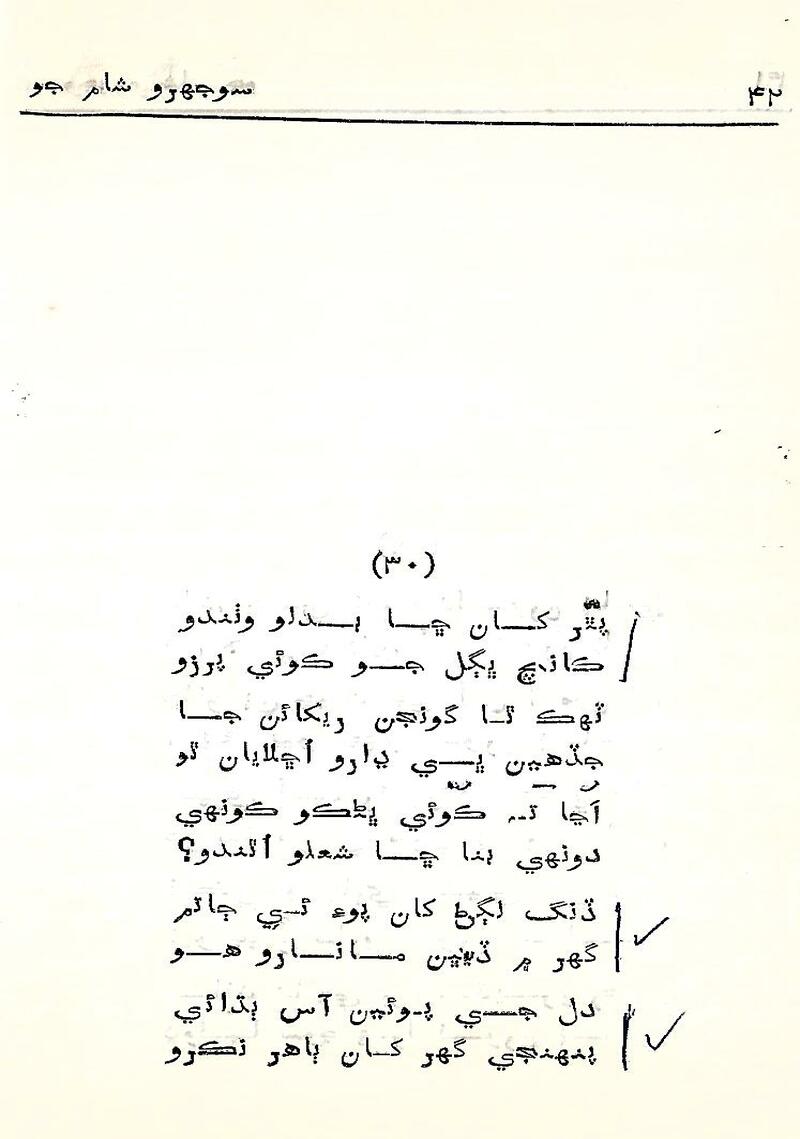 ۴۲
سوجھرو شام جو
(۳۰)
پٿر کان ڇا بدلو وٺندو
ڪانچ ڀڳل جو ڪوئي پرزو
ٽهڪ تا گونجن ريکائن جا
جڏهين ڀي ڍارو اُڇلايان ٿو
اَڃا تہ ڪوئي ڀڻڪو ڪونهي
دونهي بنا ڇا شعلو اُٿندو؟
ڏنگ لڳڻ کان پوءِ ئي ڄاتم
گهر ۾ ڏيئين مانارو هو
دل جي پوئين آس ٻڌائي
پنهنجي گهر کان ٻاهر نڪرو